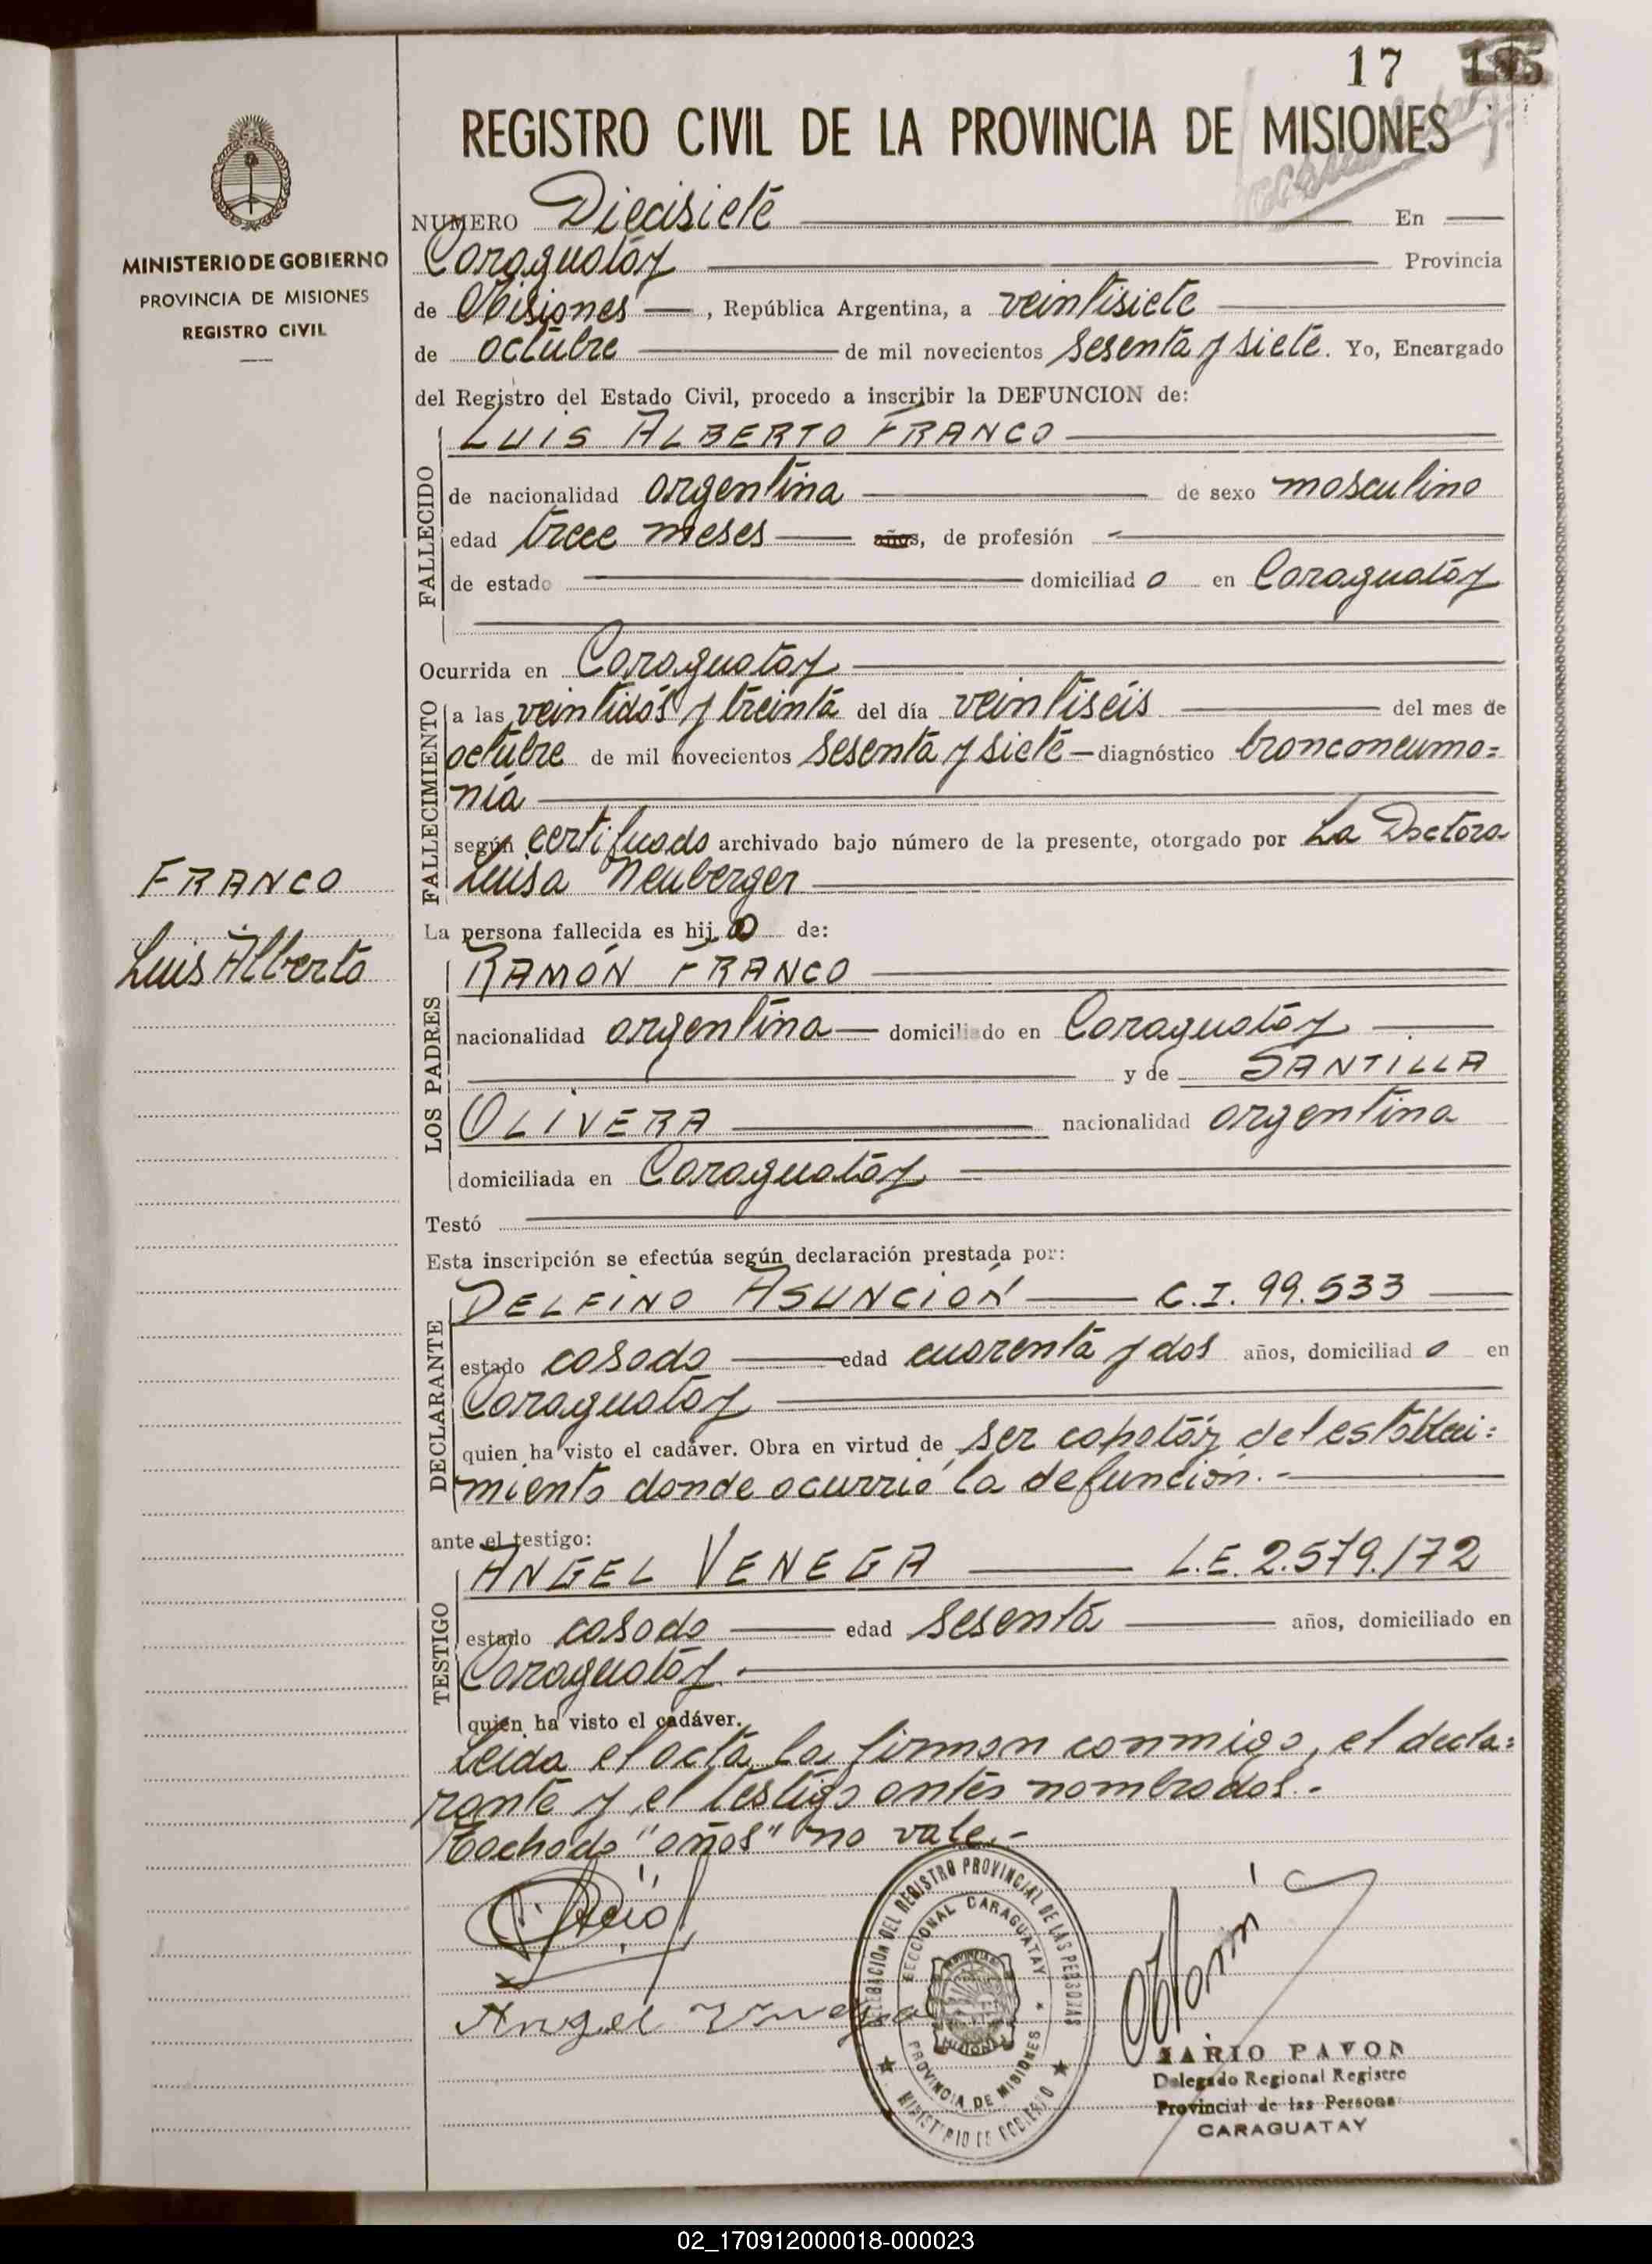 17
REGISTRO CIVIL DE LA PROVINCIA DE MISIONES
MINISTERIO DE GOBIERNO
PROVINCIA DE MISIONES
REGISTRO CIVIL
NUMERO Diecisiete En
Caraguatay Provincia
de Misiones, República Argentina, a veintisiete
de octubre de mil novecientos sesenta y siete. Yo, Encargado
del Registro del Estado Civil, procedo a inscribir la DEFUNCION de:
FALLECIDO
LUIS ALBERTO FRANCO
de nacionalidad argentina de sexo masculino
edad trece meses años, de profesión
de estado domiciliad o en Caraguatay
Ocurrida en Caraguatay
FALLECIMIENTO
a las veintidós y treinta del día veintiséis del mes de
octubre de mil novecientos sesenta y siete diagnóstico bronconeumo=
nia
según certificado archivado bajo número de la presente, otorgado por La Doctora
Luisa Neuberger
FRANCO
Luis Alberto
La persona fallecida es hij o de:
LOS PADRES
RAMÓN FRANCO
nacionalidad argentina domiciliado en Caraguatay
y de SANTILLA
OLIVERA nacionalidad argentina
domiciliada en Caraguatay
Testó
Esta inscripción se efectúa según declaración prestada por:
DECLARANTE
DELFINO ASUNCIÓN C.I. 99.533
estado casado edad cuarenta y dos años, domiciliad o en
Caraguatay
quien ha visto el cadáver. Obra en virtud de ser capatáz del estableci=
miento donde ocurrió la defunción.-
ante el testigo:
TESTIGO
ANGEL VENEGA L.E. 2.579.172
estado casado edad sesenta años, domiciliado en
Caraguatay.
quien ha visto el cadáver.
Leida el acta la firman conmigo, el decla=
rante y el testigo antes nombrados.-
Tachado "años" no vale.-
DELEGACION DEL REGISTRO PROVINCIAL DE LAS PERSONAS
SECCIONAL CARAGUATAY
PROVINCIA DE MISIONES
MINISTERIO DE GOBIERNO
Angel Venega
MARIO PAVON
Delegado Regional Registro
Provincial de las Personas
CARAGUATAY
02_170912000018-000023